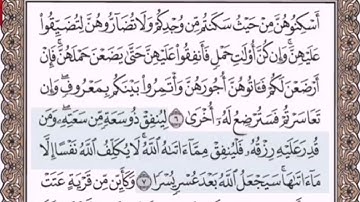 أَسْكِنُوهُنَّ مِنْ حَيْثُ سَكَنتُم مِّن وُجْدِكُمْ وَلَا تُضَآرُّوهُنَّ لِتُضَيِّقُوا۟
عَلَيْهِنَّ ۚ وَإِن كُنَّ أُو۟لَـٰتِ حَمْلٍ فَأَنفِقُوا۟ عَلَيْهِنَّ حَتَّىٰ يَضَعْنَ حَمْلَهُنَّ ۚ فَإِنْ
أَرْضَعْنَ لَكُمْ فَـَٔاتُوهُنَّ أُجُورَهُنَّ ۖ وَأْتَمِرُوا۟ بَيْنَكُم بِمَعْرُوفٍ ۖ وَإِن
تَعَاسَرْتُمْ فَسَتُرْضِعُ لَهُۥٓ أُخْرَىٰ ٦ لِيُنفِقْ ذُو سَعَةٍ مِّن سَعَتِهِۦ ۖ وَمَن
قُدِرَ عَلَيْهِ رِزْقُهُۥ فَلْيُنفِقْ مِمَّآ ءَاتَىٰهُ ٱللَّهُ ۚ لَا يُكَلِّفُ ٱللَّهُ نَفْسًا إِلَّا
مَآ ءَاتَىٰهَا ۚ سَيَجْعَلُ ٱللَّهُ بَعْدَ عُسْرٍ يُسْرًا ٧ وَكَأَيِّن مِّن قَرْيَةٍ عَتَتْ